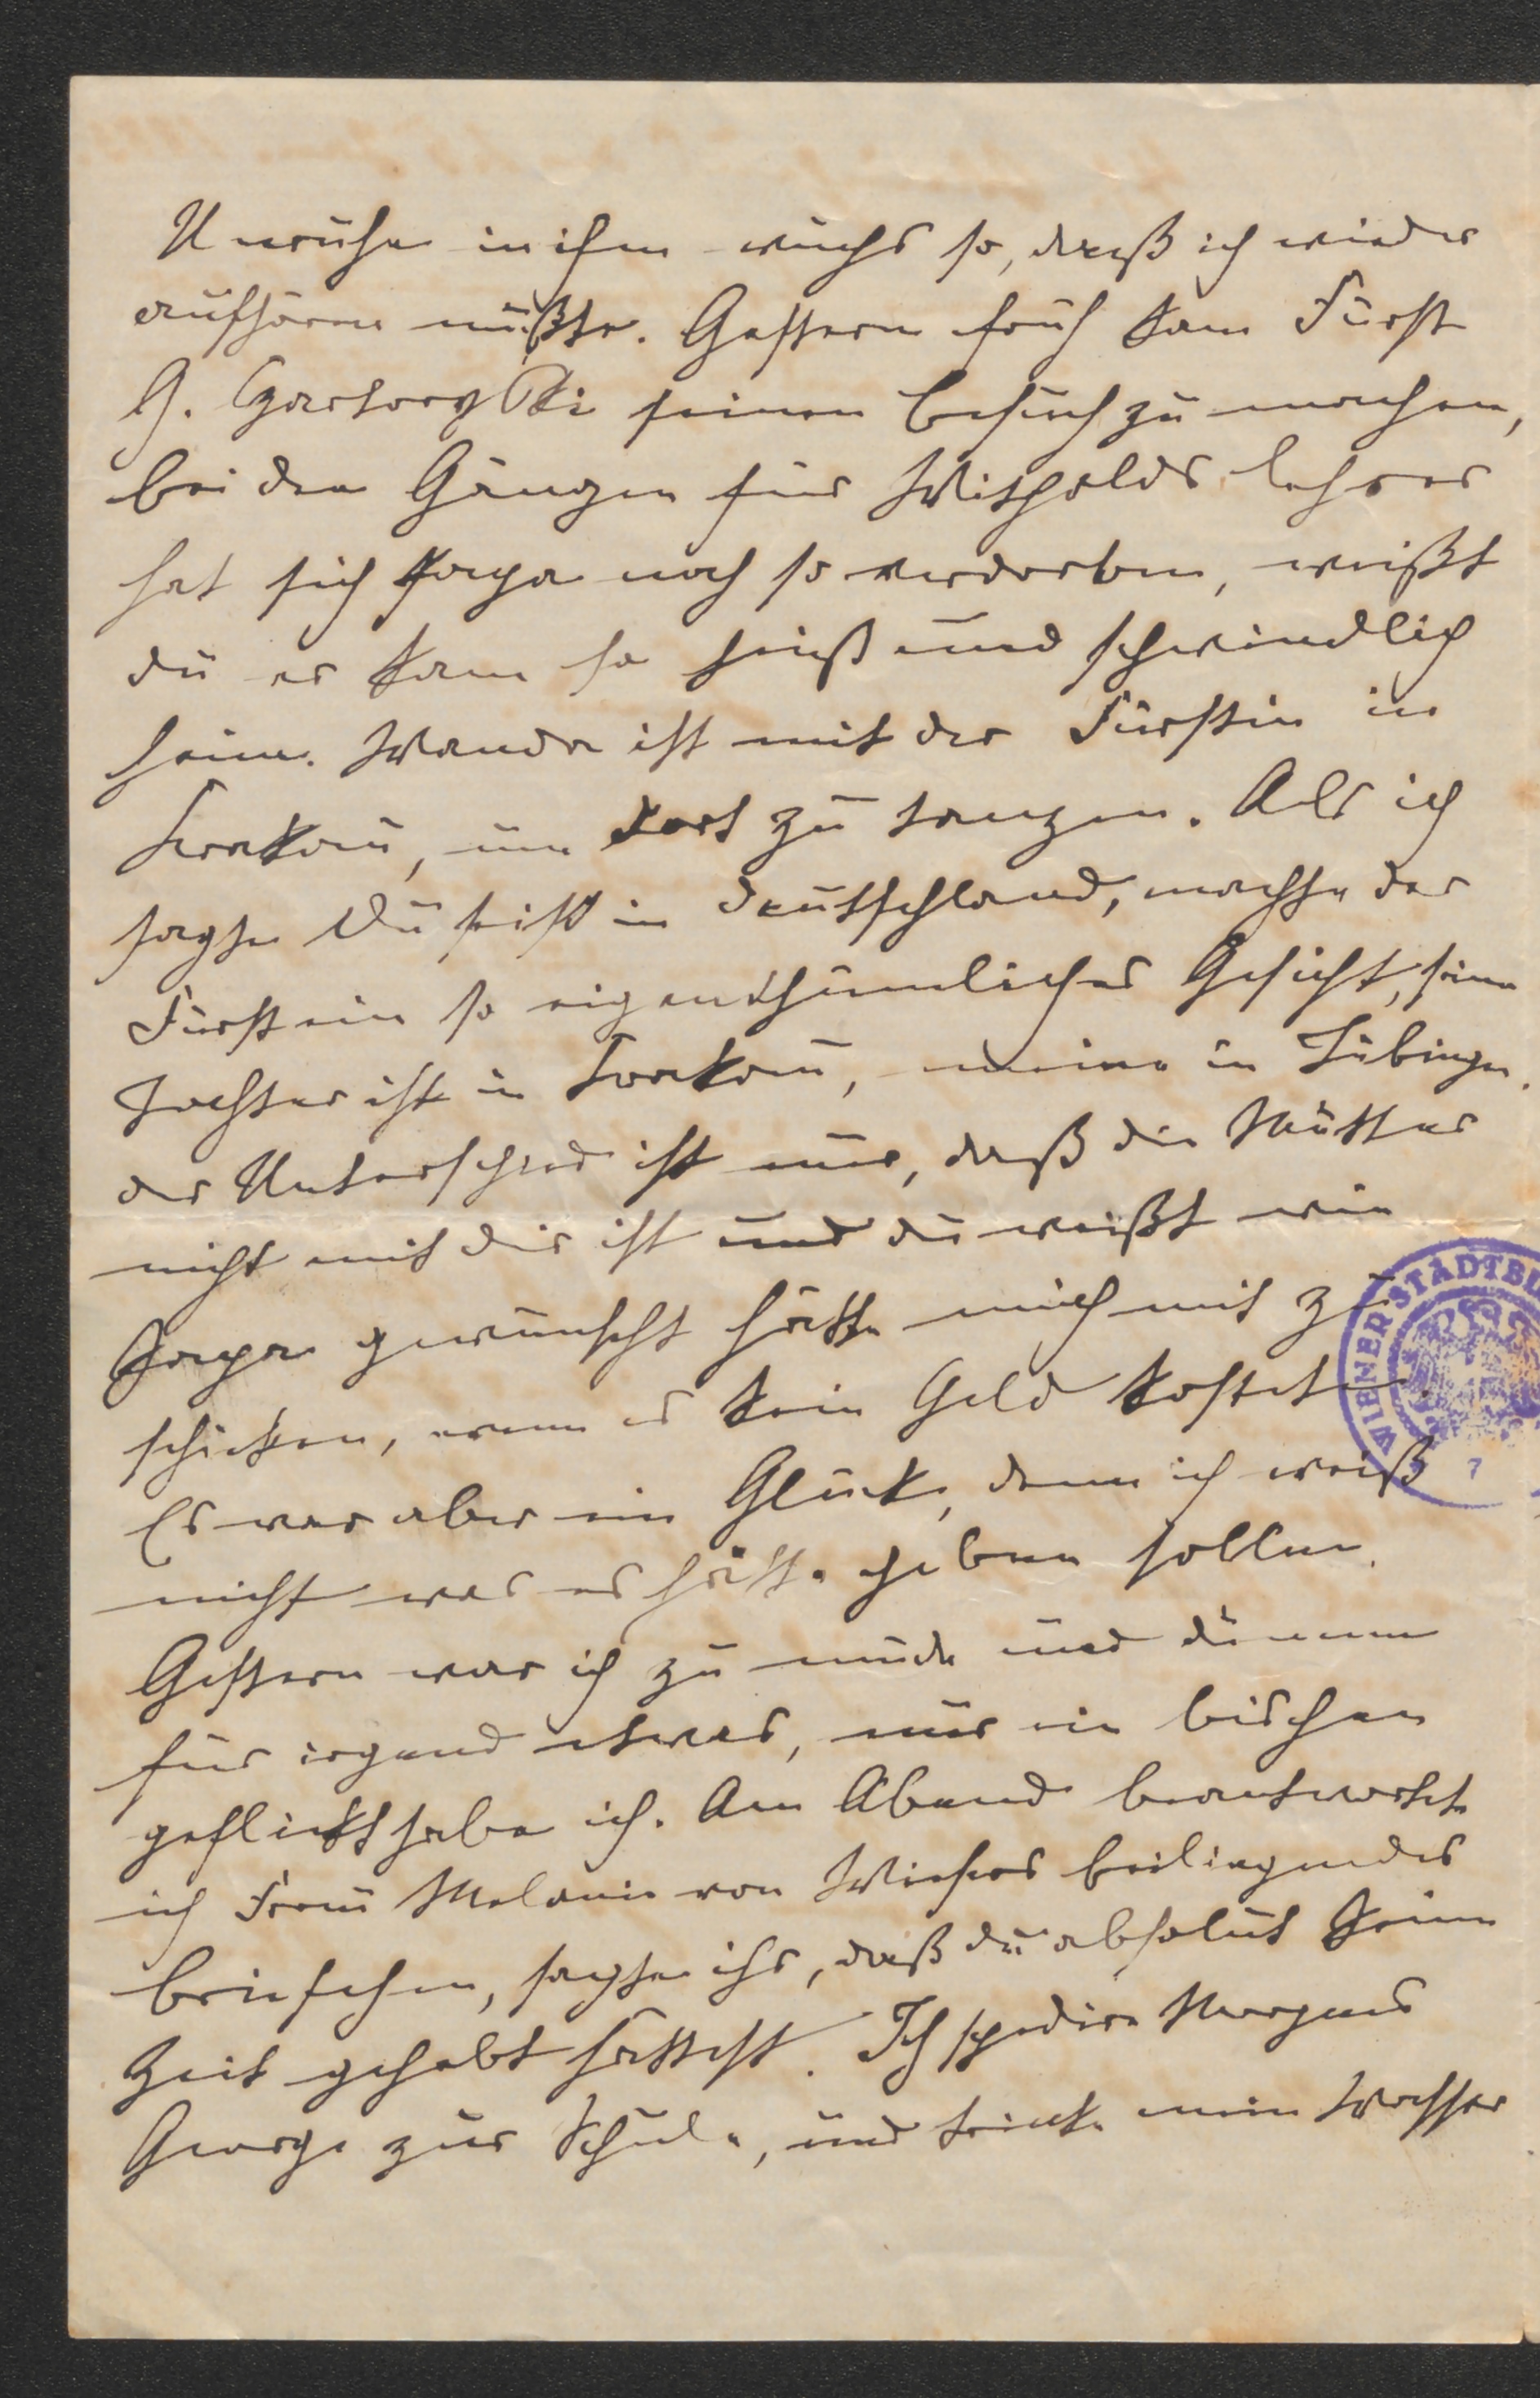 Unruhe in ihm wuchs so, daß ich wieder
aufhören mußte. Gestern früh kam Fürst
G. Czartoryski seinen Besuch zu machen,
bei den Gängen für Witholds Lehrer
hat sich Papa noch so verdorben, weißt
du er kam so heiß und schwindlich
heim. Wanda ist mit der Fürstin in
Krakau, um dort zu tanzen. Als ich
sagte Du seist in Deutschland, machte der
Fürst ein so eigenthümliches Gesicht, seine
Tochter ist in Krakau, meine in Tübingen,
der Unterschied ist nur, daß die Mutter
nicht mit dir ist und du weißt wie
Papa gewünscht hätte mich mit zu
schicken, wenn es kein Geld kostete.
Es war aber ein Glück, denn ich weiß
nicht was es hätte geben sollen.
Gestern war ich zu müde und
für irgend etwas, nur ein bischen
geflickt habe ich. Am Abend beantwortete
ich Frau Melanie von Wiesers beiliegendes
Briefchen, sagte ihr, daß du absolut keine
Zeit gehabt hättest. Ich spedire Morgens
George zur Schule, und trinke mein Wasser
WIENER STADTBI
7